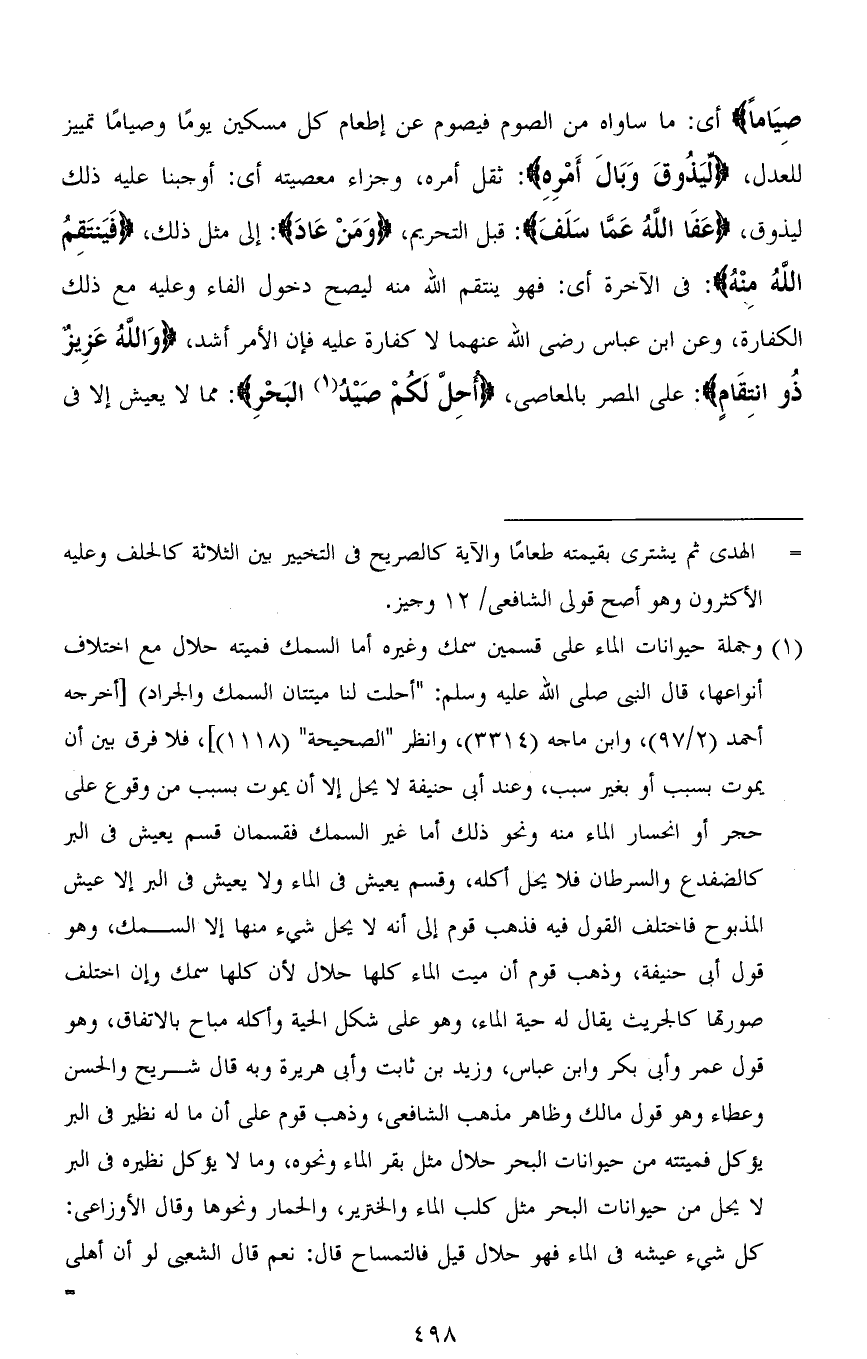 صِيَاماً﴾ أى: ما ساواه من الصوم فيصوم عن إطعام كل مسكين يومًا وصيامًا تمييز
للعدل، ﴿لِّيَذُوقَ وَبَالَ أَمْرِهِ﴾: ثقل أمره، وجزاء معصيته أى: أوجبنا عليه ذلك
ليذوق، ﴿عَفَا اللَّهُ عَمَّا سَلَفَ﴾: قبل التحريم، ﴿وَمَنْ عَادَ﴾: إلى مثل ذلك، ﴿فَيَنتَقِمُ
اللَّهُ مِنْهُ﴾: فى الآخرة أى: فهو ينتقم الله منه ليصح دخول الفاء وعليه مع ذلك
الكفارة، وعن ابن عباس رضى الله عنهما لا كفارة عليه فإن الأمر أشد، ﴿وَاللَّهُ عَزِيزٌ
ذُو انتِقَامٍ﴾: على المصر بالمعاصى، ﴿أُحِلَّ لَكُمْ صَيْدُ(١) البَحْرِ﴾: مما لا يعيش إلا فى
= الهدى ثم يشترى بقيمته طعامًا والآية كالصريح فى التخيير بين الثلاثة كالحلف وعليه
الأكثرون وهو أصح قولى الشافعى/ ١٢ وجيز.
(١) وجملة حيوانات الماء على قسمين سمك وغيره أما السمك فميته حلال مع اختلاف
أنواعها، قال النبى صلى الله عليه وسلم: "أحلت لنا ميتتان السمك والجراد) [أخرجه
أحمد (٩٧/٢)، وابن ماجه (٣٣١٤)، وانظر "الصحيحة" (١١١٨)]، فلا فرق بين أن
يموت بسبب أو بغير سبب، وعند أبى حنيفة لا يحل إلا أن يموت بسبب من وقوع على
حجر أو انحسار الماء منه ونحو ذلك أما غير السمك فقسمان قسم يعيش فى البر
كالضفدع والسرطان فلا يحل أكله، وقسم يعيش فى الماء ولا يعيش فى البر إلا عيش
المذبوح فاختلف القول فيه فذهب قوم إلى أنه لا يحل شيء منها إلا الســمك، وهو
قول أبى حنيفة، وذهب قوم أن ميت الماء كلها حلال لأن كلها سمك وإن اختلف
صورتها كالجريث يقال له حية الماء، وهو على شكل الحية وأكله مباح بالاتفاق، وهو
قول عمر وأبى بكر وابن عباس، وزيد بن ثابت وأبى هريرة وبه قال شــريح والحسن
وعطاء وهو قول مالك وظاهر مذهب الشافعى، وذهب قوم على أن ما له نظير فى البر
يؤكل فميتته من حيوانات البحر حلال مثل بقر الماء ونحوه، وما لا يؤكل نظيره فى البر
لا يحل من حيوانات البحر مثل كلب الماء والخنزير، والحمار ونحوها وقال الأوزاعى:
كل شيء عيشه فى الماء فهو حلال قيل فالتمساح قال: نعم قال الشعبى لو أن أهلى
=
٤٩٨